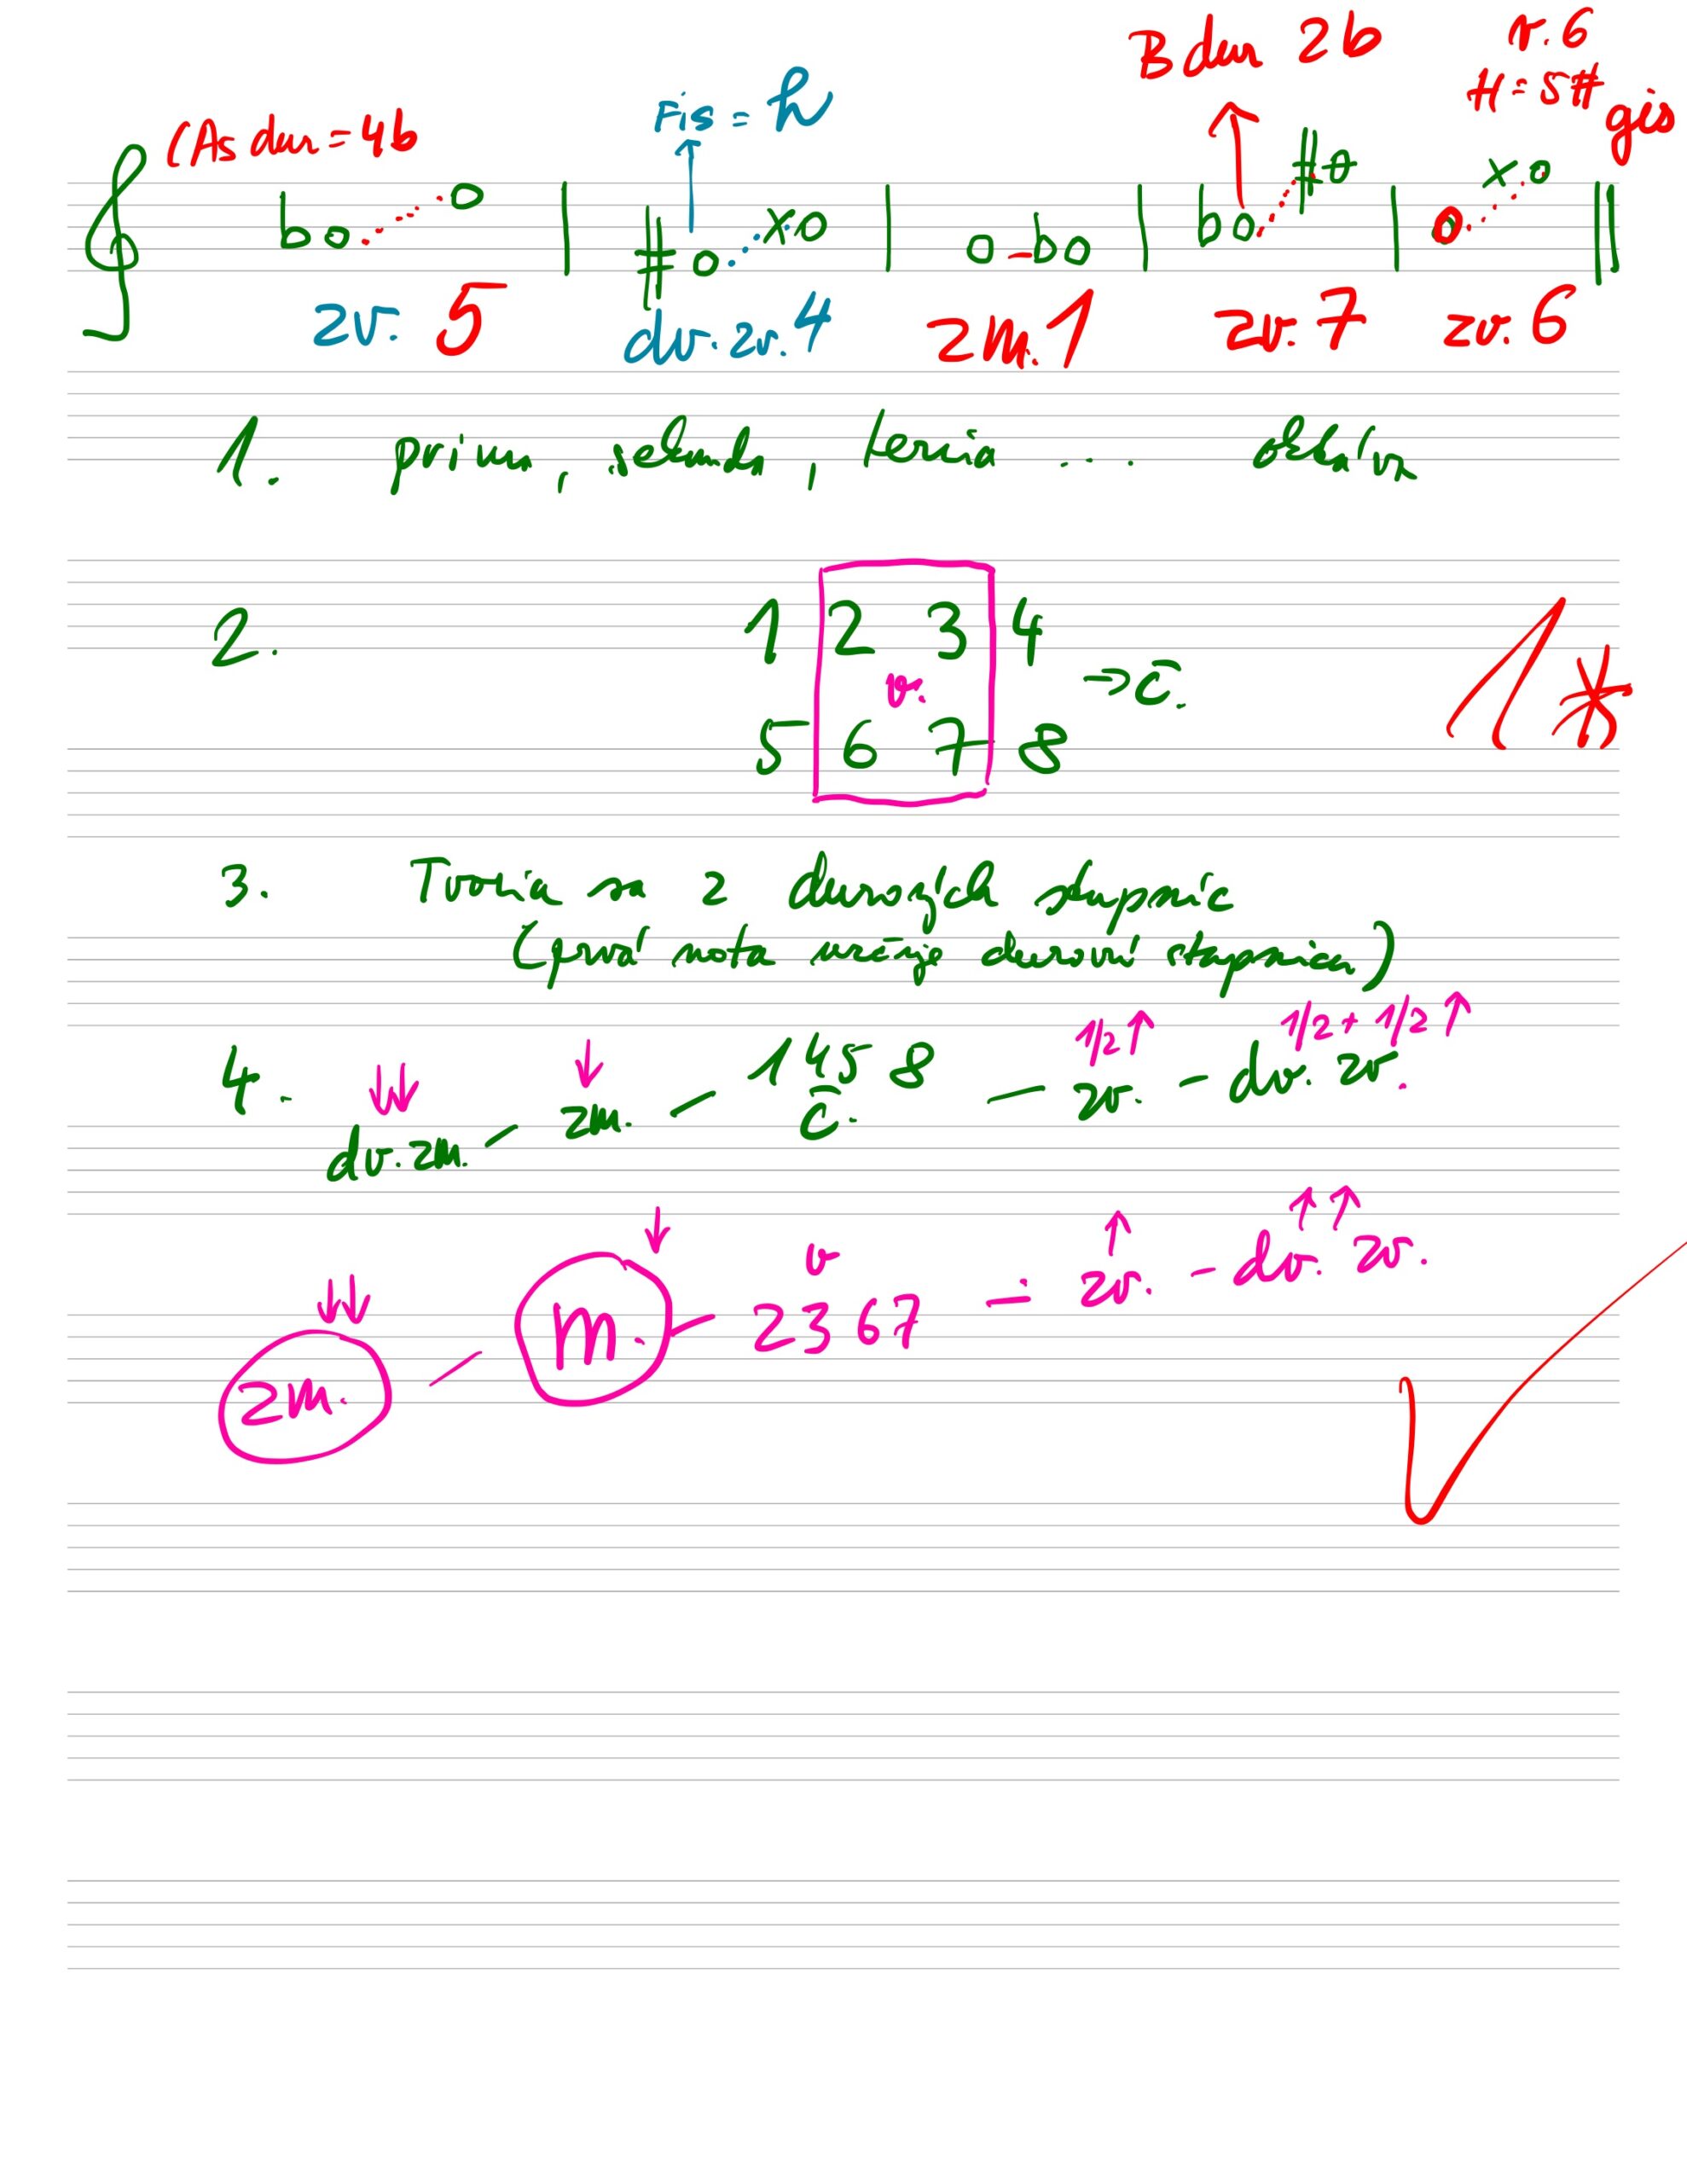 B dur 2b
v. 6
H = 5# gis
(As dur = 4b
Fis = h
zv. 5
dv. zv. 4
zm. 1
zv. 7
zv. 6
1. prima, sekunda, tercia ... oktáva
2. 1 2 3 4
v. → č.
5 6 7 8
1*
3. Tvoria sa z durových stupníc
(prvá nota určuje durovú stupnicu)
1/2 ↑ 1/2 + 1/2 ↑
4. dv. zm. - zm. - 1 4 5 8 - zv. - dv. zv.
č.
v
zm. - m. - 2 3 6 7 - zv. - dv. zv.